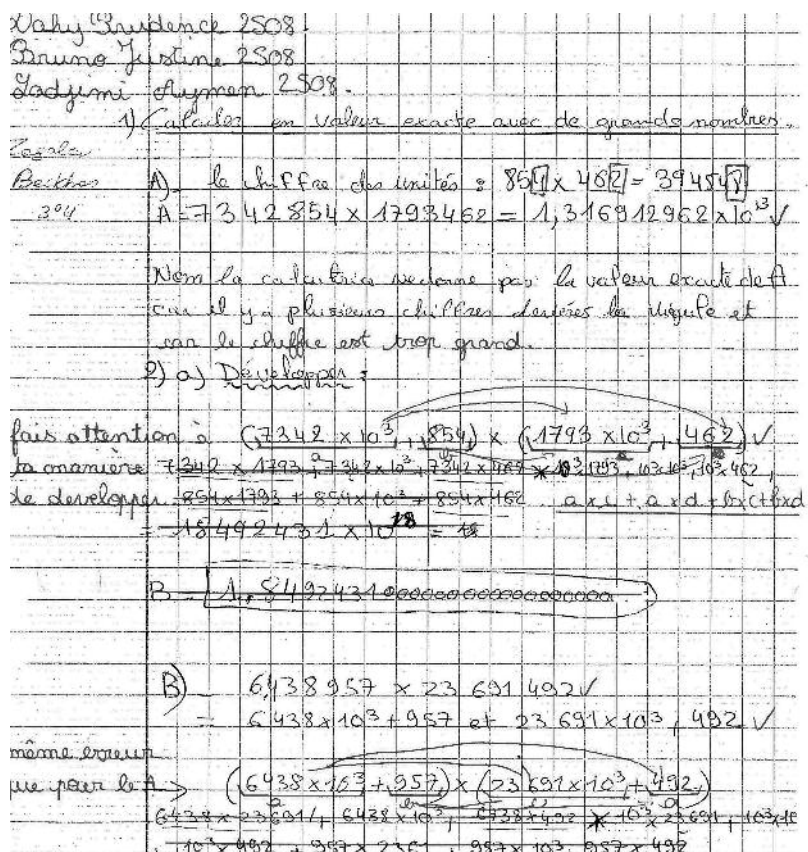 Vahy Prudence 2S08.
Bruno Justine 2S08
Ladjimi Aymen 2S08.
1) Calculer en valeur exacte avec de grands nombres.
A) le chiffre des unités : 854 x 462 = 39454
A = 7342854 x 1793462 = 1,316912962 x 10^13 √
Nom la calcutrice ne donne pas la valeur exacte de A
car il y a plusieurs chiffres derières la virgule et
car le chiffre est trop grand.
2) a) Développer :
fais attention à (7342 x 10^3 + 854) x (1793 x 10^3 + 462) √
ta manière 7342 x 1793, 7342 x 10^3, 7342 x 462 x 10^3 x 1793, 10^3 x 10^3, 10^3 x 462,
de developper 854 x 1793 + 854 x 10^3 + 854 x 462 a x c + a x d + b x c + b x d
= 18492431 x 10^18 =
B = 1,8492431
B) 6438957 x 23 691 492 √
= 6438 x 10^3 + 957 et 23 691 x 10^3, 492 √
même erreur
que pour le A > (6438 x 10^3 + 957) x (23 691 x 10^3 + 492)
6438 x 23691, 6438 x 10^3, 6438 x 492 x 10^3 x 23691, 10^3 x 10
10^3 x 492, 957 x 2361, 957 x 10^3, 957 x 492